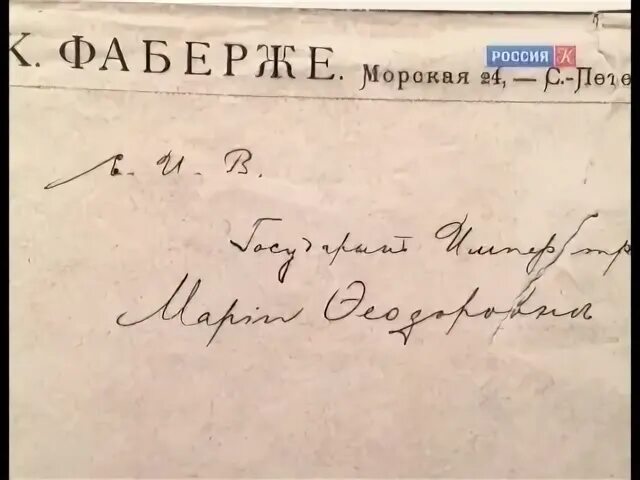 К. ФАБЕРЖЕ. Морская 24, — С.-Пете
РОССИЯ К
Е. И. В.
Государынѣ Императр
Маріи Ѳеодоровнѣ